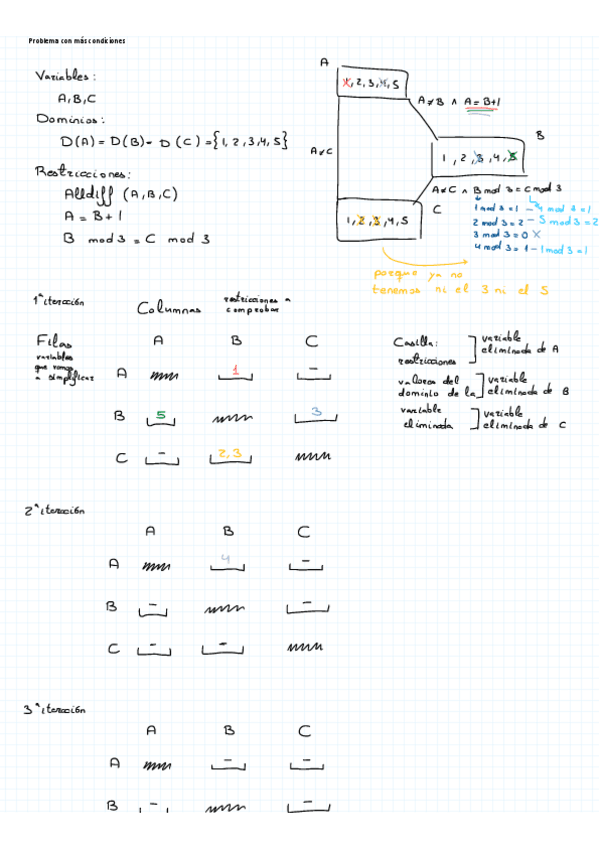 Problema con más condiciones
Variables:
A, B, C
Dominios:
D(A) = D(B) = D(C) = {1, 2, 3, 4, 5}
Restricciones:
Alldiff (A, B, C)
A = B + 1
B mod 3 = C mod 3
A
1, 2, 3, 4, 5
A≠B ∧ A = B+1
B
1, 2, 3, 4, 5
A≠C
A≠C ∧ B mod 3 = C mod 3
C
1, 2, 3, 4, 5
1 mod 3 = 1 - 4 mod 3 = 1
2 mod 3 = 2 - 5 mod 3 = 2
3 mod 3 = 0 X
4 mod 3 = 1 - 1 mod 3 = 1
porque ya no
tenemos ni el 3 ni el 5
1ª iteración
Columnas
restricciones a
comprobar
Filas
variables
que vamos
a simplificar
A B C
A 1 -
B 5 3
C - 2,3
Casilla:
restricciones
valores del
dominio de la
variable
eliminada
variable
eliminada de A
variable
eliminada de B
variable
eliminada de C
2ª iteración
A B C
A 4 -
B - -
C - -
3ª iteración
A B C
A - -
B - -